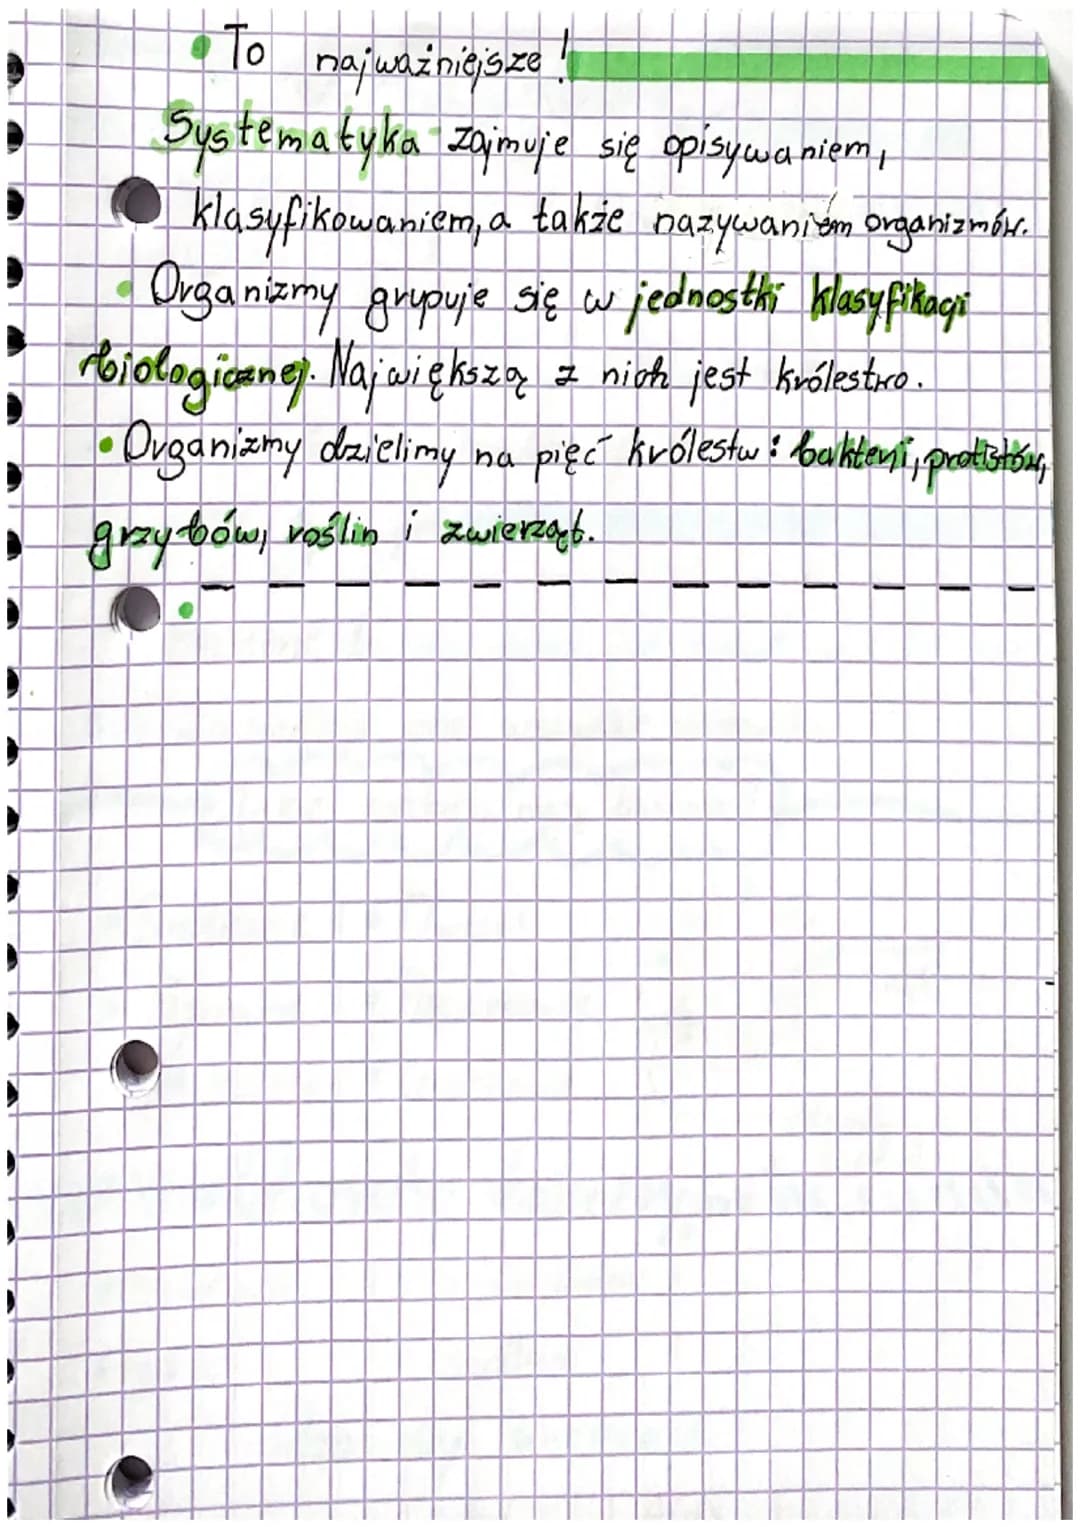 • To najważniejsze!
Systematyka - zajmuje się opisywaniem,
klasyfikowaniem, a także nazywaniem organizmów.
• Organizmy grupuje się w jednostki klasyfikacji
biologicznej. Największą z nich jest królestwo.
• Organizmy dzielimy na pięć królestw: bakterii, protistów,
grzybów, roślin i zwierząt.